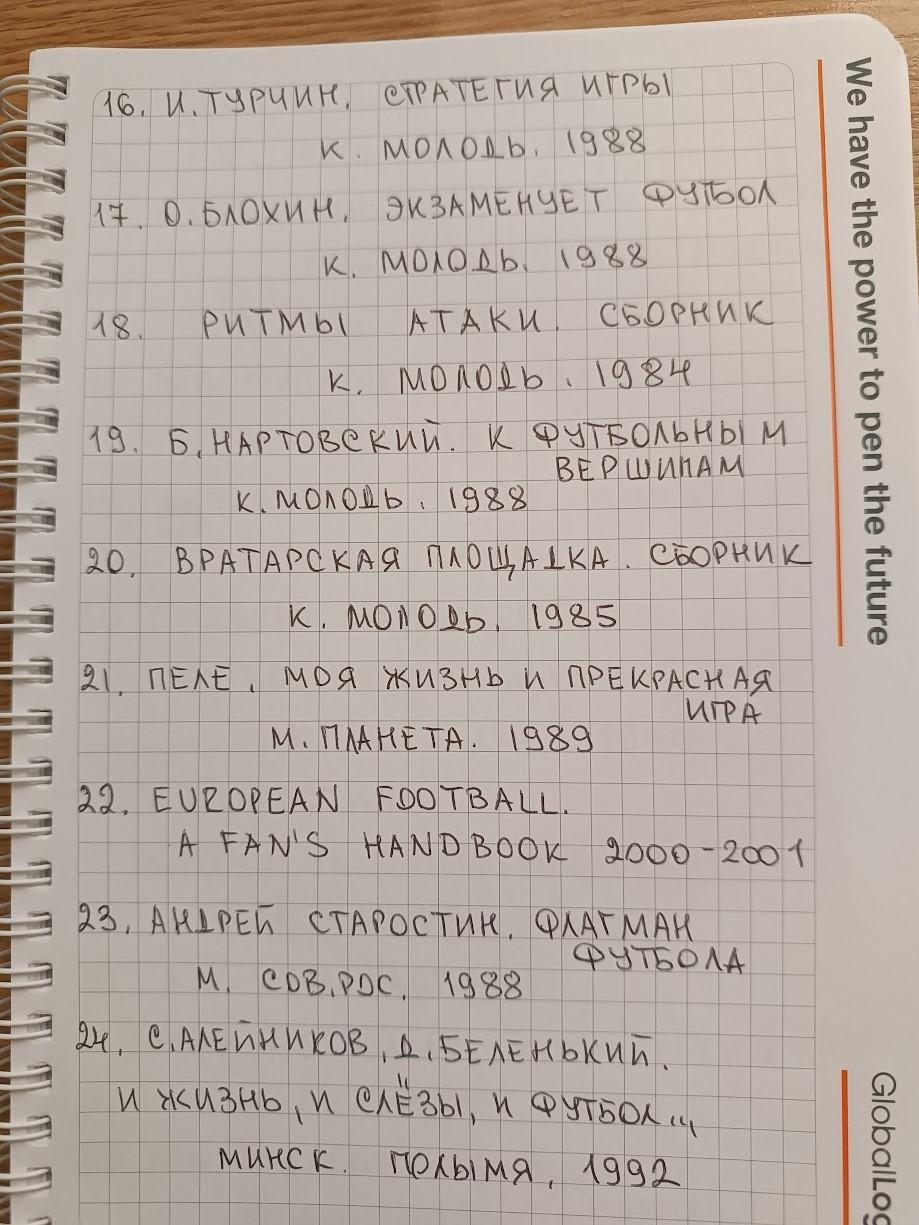 16. И. ТУРЧИН. СТРАТЕГИЯ ИГРЫ
К. МОЛОДЬ. 1988
17. О. БЛОХИН. ЭКЗАМЕНУЕТ ФУТБОЛ
К. МОЛОДЬ. 1988
18. РИТМЫ АТАКИ. СБОРНИК
К. МОЛОДЬ. 1984
19. Б. НАРТОВСКИЙ. К ФУТБОЛЬНЫМ
ВЕРШИНАМ
К. МОЛОДЬ. 1988
20. ВРАТАРСКАЯ ПЛОЩАДКА. СБОРНИК
К. МОЛОДЬ. 1985
21. ПЕЛЕ. МОЯ ЖИЗНЬ И ПРЕКРАСНАЯ
ИГРА
М. ПЛАНЕТА. 1989
22. EUROPEAN FOOTBALL.
A FAN'S HANDBOOK 2000-2001
23. АНДРЕЙ СТАРОСТИН. ФЛАГМАН
ФУТБОЛА
М. СОВ. РОС. 1988
24. С. АЛЕЙНИКОВ, Д. БЕЛЕНЬКИЙ.
И ЖИЗНЬ, И СЛЁЗЫ, И ФУТБОЛ...
МИНСК. ПОЛЫМЯ, 1992
We have the power to pen the future
GlobalLog